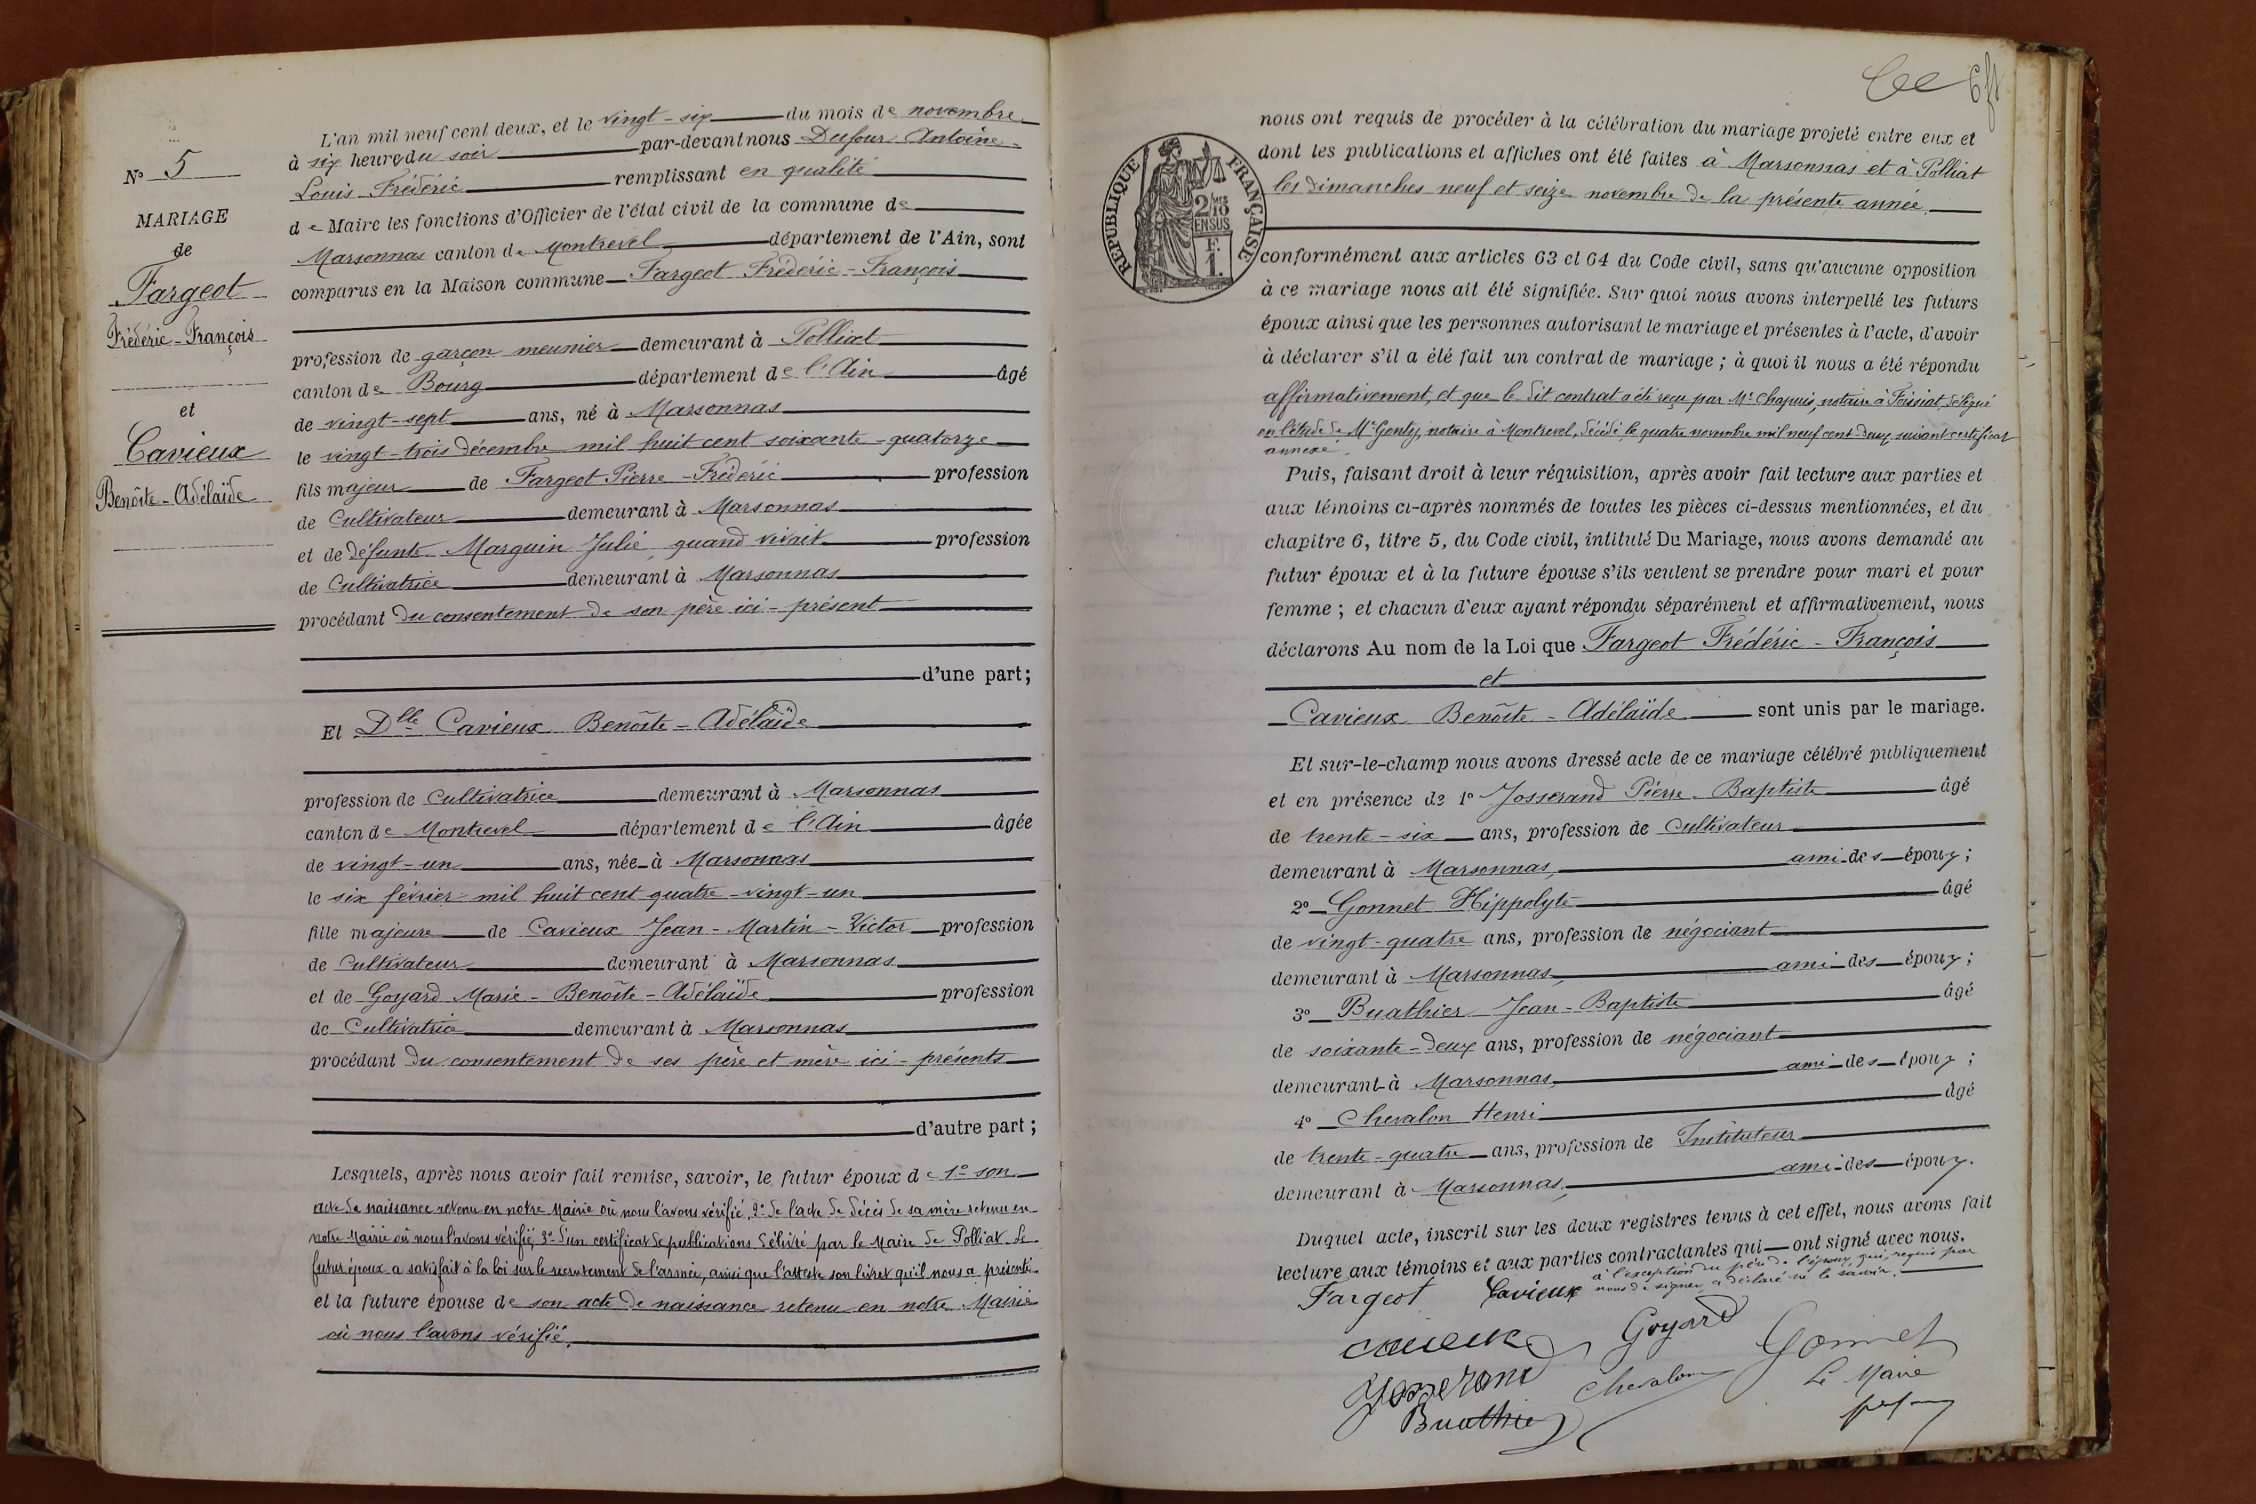 N° 5
MARIAGE
de
Fargeot
Frédéric-François
et
Cavieux
Benôite-Adélaïde
L'an mil neuf cent deux, et le vingt-six du mois de novembre
à six heures du soir par-devant nous Dufour Antoine-
Louis-Frédéric remplissant en qualité
de Maire les fonctions d'Officier de l'état civil de la commune de
Marsonnas canton de Montrevel département de l'Ain, sont
comparus en la Maison commune Fargeot Frédéric-François
profession de garçon meunier demeurant à Polliat
canton de Bourg département de l'Ain âgé
de vingt-sept ans, né à Marsonnas
le vingt-trois décembre mil huit cent soixante-quatorze
fils majeur de Fargeot Pierre-Frédéric profession
de Cultivateur demeurant à Marsonnas
et de défunte Marguin Julie, quand vivait profession
de Cultivatrice demeurant à Marsonnas
procédant du consentement de son père ici-présent
d'une part;
Et Dlle Cavieux Benôite-Adélaïde
profession de Cultivatrice demeurant à Marsonnas
canton de Montrevel département de l'Ain âgée
de vingt-un ans, née à Marsonnas
le six février mil huit cent quatre-vingt-un
fille majeure de Cavieux Jean-Martin-Victor profession
de Cultivateur demeurant à Marsonnas
et de Goyard Marie-Benôite-Adélaïde profession
de Cultivatrice demeurant à Marsonnas
procédant du consentement de ses père et mère ici-présents
d'autre part;
Lesquels, après nous avoir fait remise, savoir, le futur époux de 1° son
acte de naissance retenu en notre Mairie où nous l'avons vérifié, 2° de l'acte de décès de sa mère retenu en
notre Mairie où nous l'avons vérifié, 3° d'un certificat de publications délivré par le Maire de Polliat. Le
futur époux a satisfait à la loi sur le recrutement de l'armée, ainsi que l'atteste son livret qu'il nous a présenté
et la future épouse de son acte de naissance retenu en notre Mairie
où nous l'avons vérifié.
RÉPUBLIQUE FRANÇAISE
2/10
EN SUS
F.
1.
nous ont requis de procéder à la célébration du mariage projeté entre eux et
dont les publications et affiches ont été faites à Marsonnas et à Polliat
les dimanches neuf et seize novembre de la présente année
conformément aux articles 63 et 64 du Code civil, sans qu'aucune opposition
à ce mariage nous ait été signifiée. Sur quoi nous avons interpellé les futurs
époux ainsi que les personnes autorisant le mariage et présentes à l'acte, d'avoir
à déclarer s'il a été fait un contrat de mariage; à quoi il nous a été répondu
affirmativement, et que le dit contrat a été reçu par Me Chapuis, notaire à Foissiat, délégué
en l'étude de Me Genty, notaire à Montrevel, décédé, le quatre novembre mil neuf cent-deux, suivant certificat
annexé.
Puis, faisant droit à leur réquisition, après avoir fait lecture aux parties et
aux témoins ci-après nommés de toutes les pièces ci-dessus mentionnées, et du
chapitre 6, titre 5, du Code civil, intitulé Du Mariage, nous avons demandé au
futur époux et à la future épouse s'ils veulent se prendre pour mari et pour
femme; et chacun d'eux ayant répondu séparément et affirmativement, nous
déclarons Au nom de la Loi que Fargeot Frédéric-François
et
Cavieux Benôite-Adélaïde sont unis par le mariage.
Et sur-le-champ nous avons dressé acte de ce mariage célébré publiquement
et en présence de 1° Josserand Pierre-Baptiste âgé
de trente-six ans, profession de Cultivateur
demeurant à Marsonnas, ami des époux;
2° Gonnet Hippolyte âgé
de vingt-quatre ans, profession de négociant
demeurant à Marsonnas, ami des époux;
3° Buathier Jean-Baptiste âgé
de soixante-deux ans, profession de négociant
demeurant à Marsonnas, ami des époux;
4° Chevalon Henri âgé
de trente-quatre ans, profession de Instituteur
demeurant à Marsonnas, ami des époux.
Duquel acte, inscrit sur les deux registres tenus à cet effet, nous avons fait
lecture aux témoins et aux parties contractantes qui ont signé avec nous.
à l'exception du père de l'époux, qui, requis par
nous de signer, a déclaré ne le savoir.
Fargeot Cavieux
Cavieux Goyard Gonnet
Josserand Chevalon Le Maire
Buathier